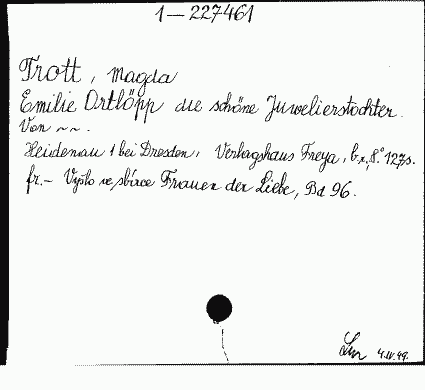 1-227461
Trott, Magda
Emilie Ortlöpp die schöne Juwelierstochter.
Von ~~.
Heidenau 1 bei Dresden, Verlagshaus Freya, b.r., 8° 127 s.
fr.- Vyšlo ve sbírce Frauen der Liebe, Bd 96.
4.IV.49.